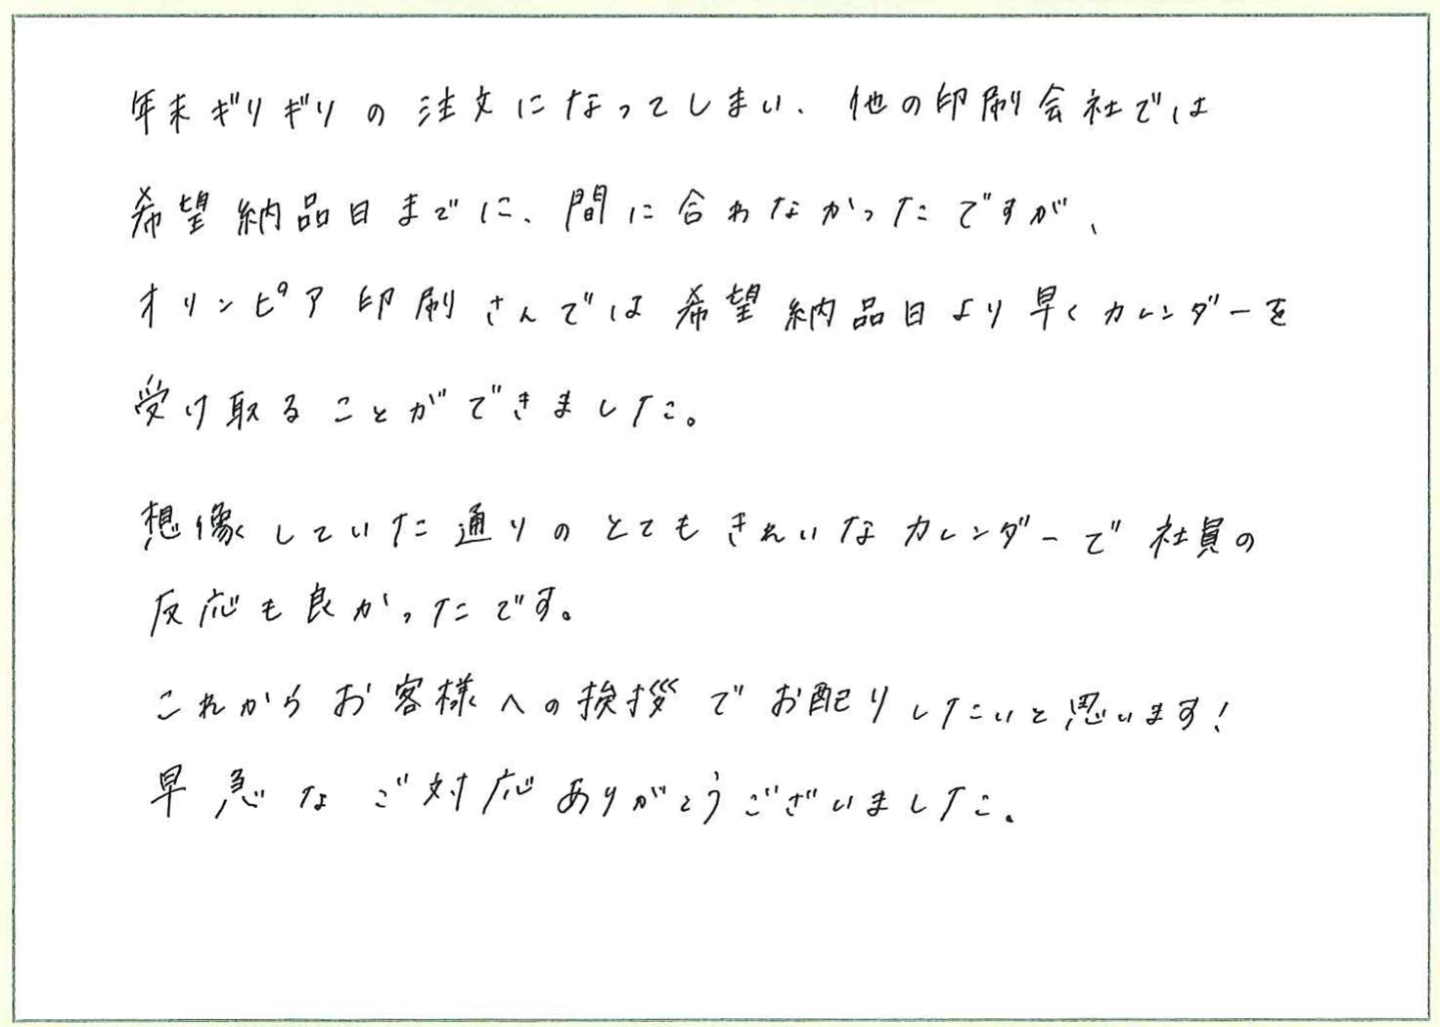 年末ギリギリの注文になってしまい、他の印刷会社では
希望納品日までに、間に合わなかったですが、
オリンピア印刷さんでは希望納品日より早くカレンダーを
受け取ることができました。
想像していた通りのとてもきれいなカレンダーで社員の
反応も良かったです。
これからお客様への挨拶でお配りしたいと思います!
早急なご対応ありがとうございました。